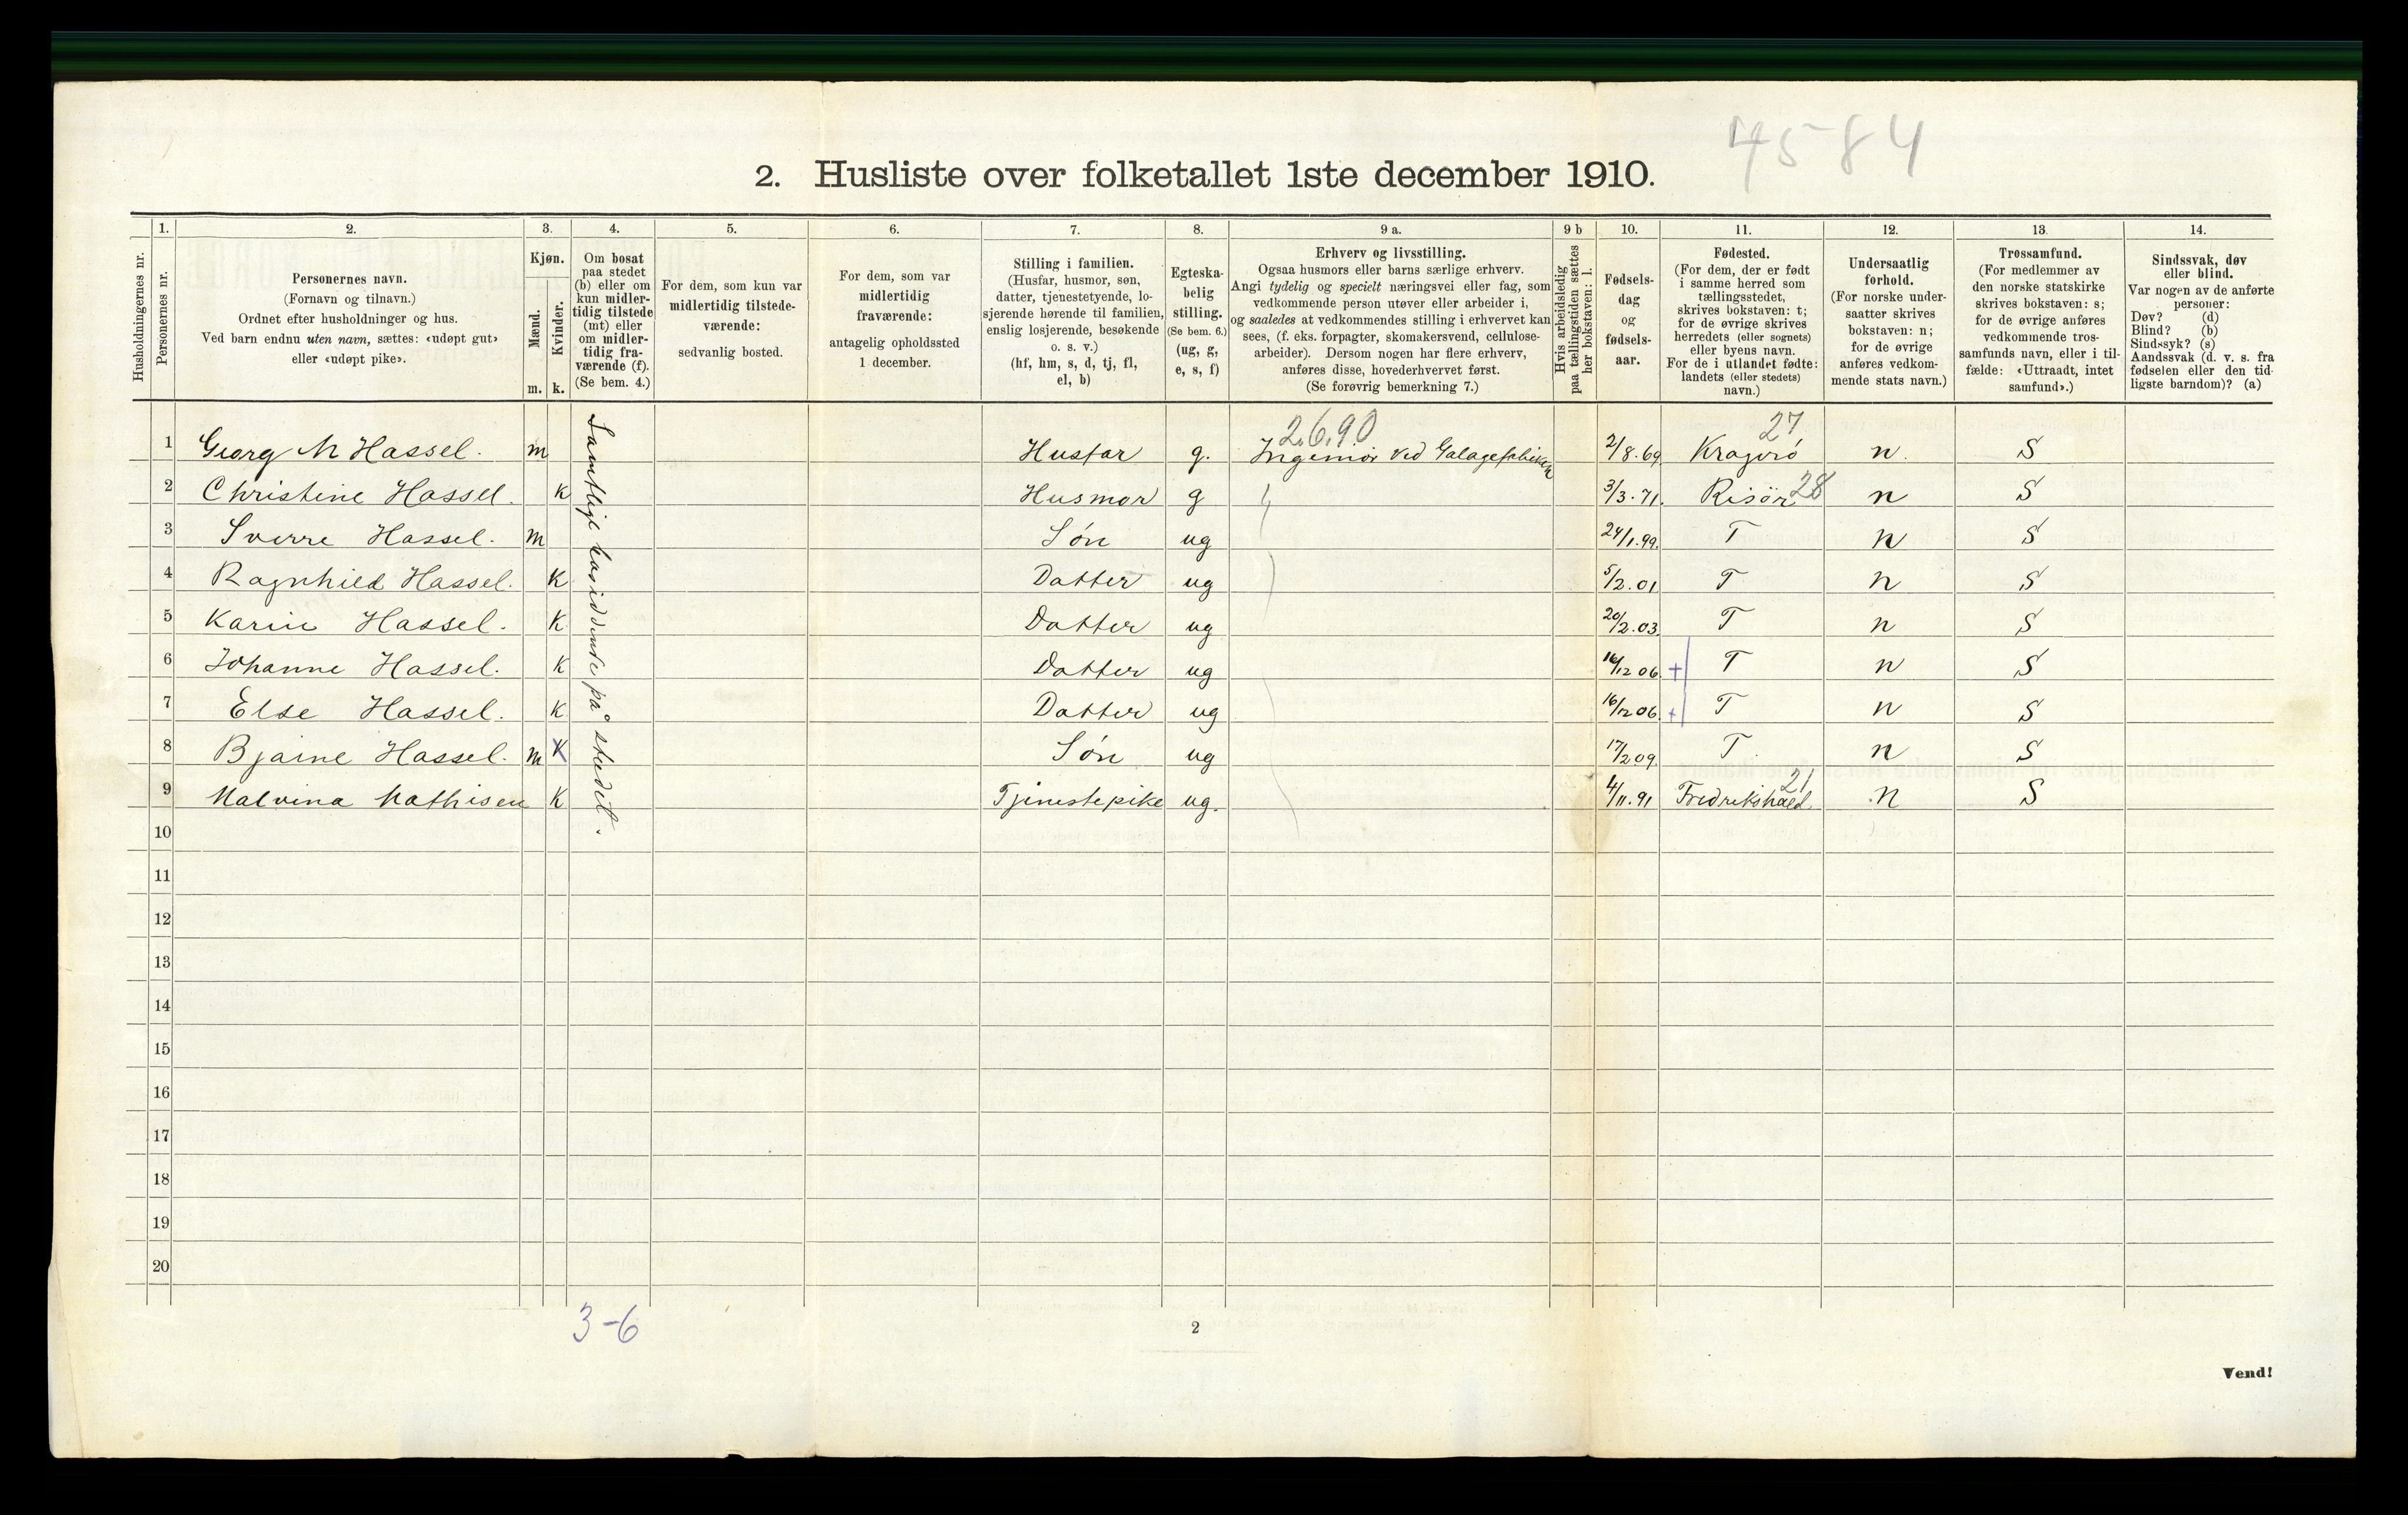 4584
2. Husliste over folketallet 1ste december 1910.
Husholdningernes nr.
1.
Personernes nr.
2.
Personernes navn.
(Fornavn og tilnavn.)
Ordnet efter husholdninger og hus.
Ved barn endnu uten navn, sættes: «udøpt gut»
eller «udøpt pike».
3.
Kjøn.
Mænd.
m.
Kvinder.
k.
4.
Om bosat
paa stedet
(b) eller om
kun midler-
tidig tilstede
(mt) eller
om midler-
tidig fra-
værende (f).
(Se bem. 4.)
5.
For dem, som kun var
midlertidig tilstede-
værende:
sedvanlig bosted.
6.
For dem, som var
midlertidig
fraværende:
antagelig opholdssted
1 december.
7.
Stilling i familien.
(Husfar, husmor, søn,
datter, tjenestetyende, lo-
sjerende hørende til familien,
enslig losjerende, besøkende
o. s. v.)
(hf, hm, s, d, tj, fl,
el, b)
8.
Egteska-
belig
stilling.
(Se bem. 6.)
(ug, g,
e, s, f)
9 a.
Erhverv og livsstilling.
Ogsaa husmors eller barns særlige erhverv.
Angi tydelig og specielt næringsvei eller fag, som
vedkommende person utøver eller arbeider i,
og saaledes at vedkommendes stilling i erhvervet kan
sees, (f. eks. forpagter, skomakersvend, cellulose-
arbeider). Dersom nogen har flere erhverv,
anføres disse, hovederhvervet først.
(Se forøvrig bemerkning 7.)
9 b
Hvis arbeidsledig
paa tællingstiden sættes
her bokstaven: l.
10.
Fødsels-
dag
og
fødsels-
aar.
11.
Fødested.
(For dem, der er født
i samme herred som
tællingsstedet,
skrives bokstaven: t;
for de øvrige skrives
herredets (eller sognets)
eller byens navn.
For de i utlandet fødte:
landets (eller stedets)
navn.)
12.
Undersaatlig
forhold.
(For norske under-
saatter skrives
bokstaven: n;
for de øvrige
anføres vedkom-
mende stats navn.)
13.
Trossamfund.
(For medlemmer av
den norske statskirke
skrives bokstaven: s;
for de øvrige anføres
vedkommende tros-
samfunds navn, eller i til-
fælde: «Uttraadt, intet
samfund».)
14.
Sindssvak, døv
eller blind.
Var nogen av de anførte
personer:
Døv? (d)
Blind? (b)
Sindssyk? (s)
Aandssvak (d. v. s. fra
fødselen eller den tid-
ligste barndom)? (a)
Samtlige bosiddende på stedet.
2.6.90 27
1 Georg M Hassel. m Husfar g. Ingeniør ved Galagefabriken 2/8.69 Kragerø n. S
2 Christine Hassel. K Husmor g 3/3.71. Risør 28 n S
3 Sverre Hassel. m Søn ug 24/1.99. T n S
4 Ragnhild Hassel. K Datter ug 5/2.01 T n S
5 Karin Hassel. K Datter ug 20/2.03. T n S
6 Johanne Hassel. K Datter ug 16/12 06. + T n S
7 Else Hassel. K Datter ug 16/12 06. + T n S
8 Bjarne Hassel. m K Søn ug 17/2 09. T. n S
9 Malvina Mathisen K Tjenestepike ug. 4/11.91 Fredrikshald 21 n S
10
11
12
13
14
15
16
17
18
19
20
3-6
2
Vend!